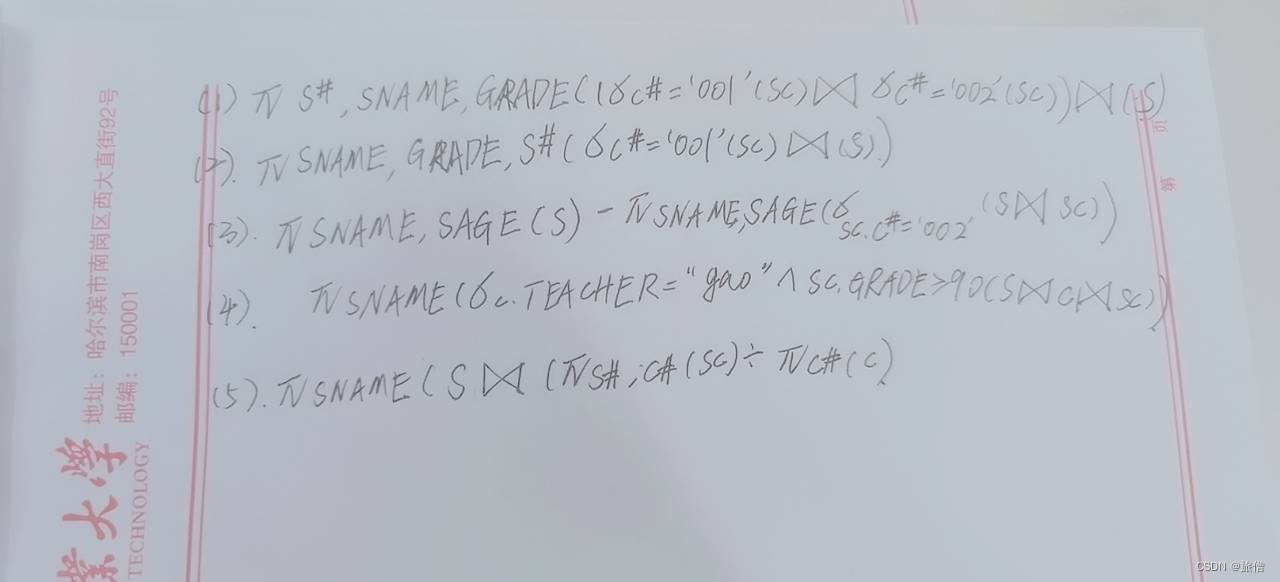 (1) π S#, SNAME, GRADE((σC#='001'(SC)⋈ σC#='002'(SC))⋈(S)
(2). π SNAME, GRADE, S#(σC#='001'(SC)⋈(S))
(3). π SNAME, SAGE(S) - π SNAME, SAGE(σ SC.C#='002' (S⋈SC))
(4). π SNAME(σ C.TEACHER="gao"∧SC.GRADE>90(S⋈C⋈SC))
(5). π SNAME(S⋈(π S#,C#(SC)÷π C#(C)
地址:哈尔滨市南岗区西大直街92号
邮编:150001
业大学
TECHNOLOGY
第
页
CSDN @旅僧